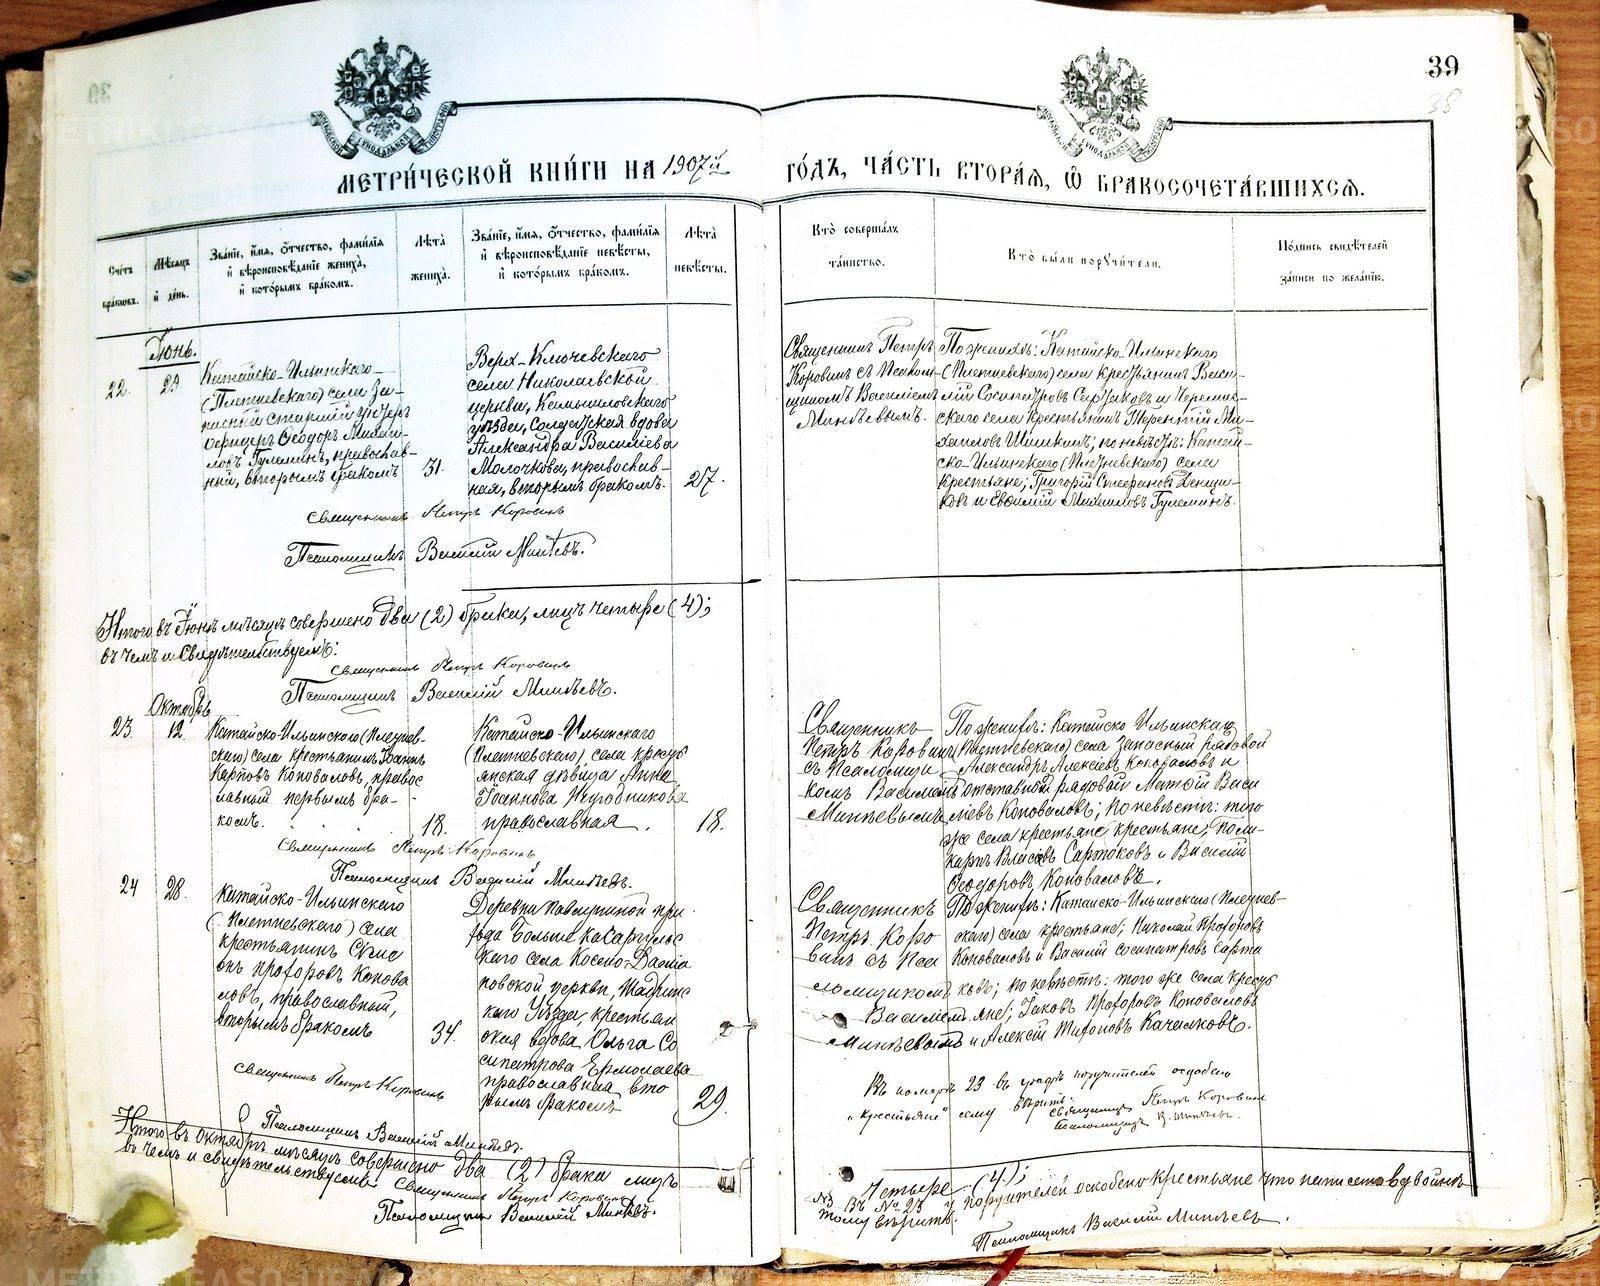 39
38
МЕТРИ́ЧЕСКОЙ КНИ́ГИ НА 1907й ГО́ДЪ, ЧА́СТЬ ВТОРА́Я, Ѡ БРАКОСОЧЕТА́ВШИХСЯ.
Счетъ браковъ.
Мѣсяцъ и день.
Званіе, имя, отчество, фамилія
и вѣроисповѣданіе жениха,
и которымъ бракомъ.
Лѣта
жениха.
Званіе, имя, отчество, фамилія
и вѣроисповѣданіе невѣсты,
и которымъ бракомъ.
Лѣта
невѣсты.
Кто совершалъ
таинство.
Кто были поручители.
Подпись свидѣтелей
записи по желанію.
Іюнь.
22. 29
Катайско-Ильинскаго
(Плетневскаго) села За-
пасный старшій унтеръ
офицеръ Ѳеодоръ Михаи-
ловъ Гулеминъ, православ-
ный, вторымъ бракомъ
31.
Верх-Ключевскаго
села Николаевской
церкви, Камышловскаго
уѣзда, солдатская вдова
Александра Василіева
Молочкова, православ-
ная, вторымъ бракомъ.
27.
Священникъ Петръ
Коровинъ с Псалом-
щикомъ Василіемъ
Минѣевымъ.
По женихѣ: Катайско-Ильинскаго
(Плетневскаго) села крестьянинъ Васи-
лій Сосипатровъ Сартаковъ и Черемис-
скаго села крестьянинъ Терентій Ми-
хаиловъ Шишкинъ; по невѣстѣ: Катай-
ско-Ильинскаго (Плетневскаго) села
крестьяне; Григорій Стефановъ Денщи-
ковъ и Евфимій Михаиловъ Гулеминъ.
Священникъ Петръ Коровинъ
Псаломщикъ Василій Минѣевъ.
Итого въ Іюнѣ мѣсяцѣ совершено два (2) брака, лицъ четыре (4);
въ чемъ и свидѣтельствуемъ:
Священникъ Петръ Коровинъ
Псаломщикъ Василій Минѣевъ.
Октябрь
23 12
Катайско-Ильинскаго (Плетнев-
скаго) села крестьянинъ Іоаннъ
Карповъ Коноваловъ, правос
лавный первымъ бра-
комъ.
18.
Катайско-Ильинскаго
(Плетневскаго) села кресть
янская дѣвица Анна
Іоаннова
православная.
18.
Священникъ
Петръ Коровинъ
съ Псаломщи
комъ Василіемъ
Минѣевымъ
По женихѣ: Катайско Ильинскаго
(Плетневскаго) села запасный рядовой
Александръ Алексѣевъ Коноваловъ и
отставной рядовой Матѳій Васи
ліевъ Коноваловъ; по невѣстѣ: того
же села крестьяне крестьяне; Поли-
карпъ Власовъ Сартаковъ и Василій
Ѳеодоровъ Коноваловъ.
Священникъ Петръ Коровинъ
Псаломщикъ Василій Минѣевъ.
24 28.
Катайско-Ильинскаго
(Плетневскаго) села
крестьянинъ Симе
онъ Прохоровъ Конова
ловъ, православный,
вторымъ бракомъ
34.
Деревни при
хода Больше Касаргульс
каго села Космо-Даміа
новской церкви, Шадринс
каго Уѣзда, крестьян
ская вдова Ольга Со
сипатрова Ермолаева
православная вто
рымъ бракомъ
29.
Священникъ
Петръ Коро
винъ съ Пса
ломщикомъ
Василіемъ
Минѣевымъ
По женихѣ: Катайско-Ильинскаго (Плетнев-
скаго) села крестьяне; Николай Прохоровъ
Коноваловъ и Василій Сосипатровъ Сарта
ковъ; по невѣстѣ: того же села кресть
яне; Іаковъ Прохоровъ Коноваловъ
и Алексѣй Тихоновъ Качалковъ.
Священникъ Петръ Коровинъ
Псаломщикъ Василій Минѣевъ.
Въ номерѣ 23 въ графѣ поручителей оскоблено
„крестьяне" сему вѣрить:
Священникъ Петръ Коровинъ
Псаломщикъ В. Минѣевъ.
Итого въ октябрѣ мѣсяцѣ совершено два (2) брака лицъ
Четыре (4);
въ чемъ и свидѣтельствуемъ Священникъ Петръ Коровинъ
Псаломщикъ Василій Минѣевъ.
Въ № 23 поручителей оскоблено крестьяне что написано вдвойнѣ
тому вѣрить.
Псаломщикъ Василій Минѣевъ.